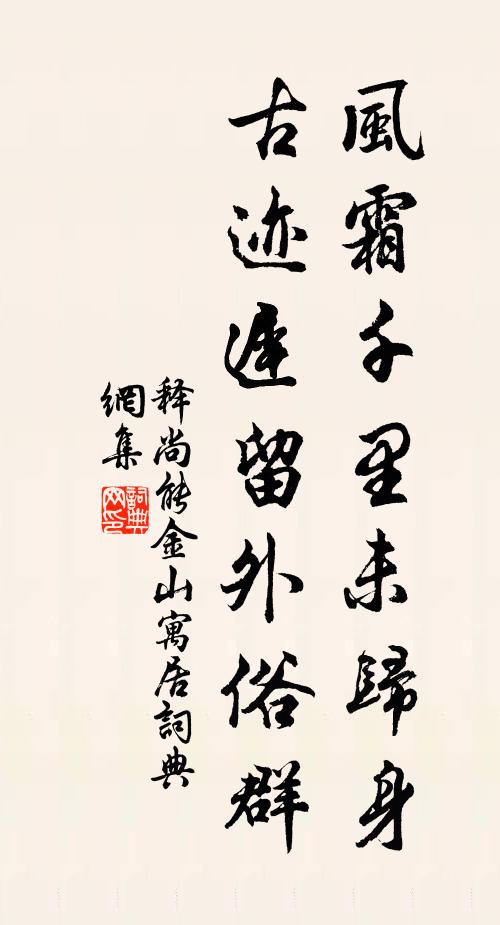 風霜千里未歸身
古迹遲留外俗群
释尚能金山寓居詞典
網集
詞典
网印